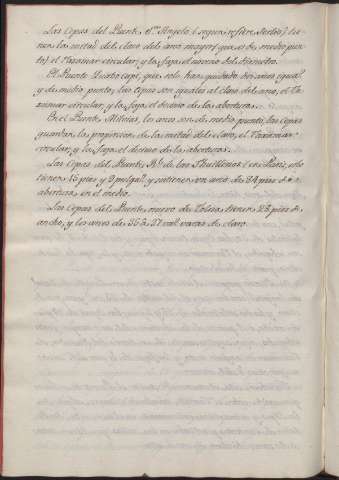 Las Cepas del Puente S.ⁿ Angelo (segun refiere Serlio) tie-
nen la mitad del claro del arco mayor (que es de medio pun-
to) el Taxamar circular, y la faja el onceno del diámetro.
El Puente Quatro Capi, que solo han quedado dos arcos iguales
y de medio punto, las cepas son iguales al claro del arco, el Ta-
xamar circular, y la faja el decimo de la abertura.
En el Puente Milvius, los arcos son de medio punto, las Cepas
guardan la proporcion de la mitad del claro, el Taxamar
circular, y la faja el decimo de la abertura.
Las Cepas del Puente R.ˡ de las Thuillerias en Paris, solo
tienen 15 pies y 9 pulgad.ˢ y sostienen un arco de 84 pies de
abertura en el medio.
Las Cepas del Puente nuevo de Tolosa tienen 28 pies de
ancho, y los arcos de 36 à 37 varas de claro